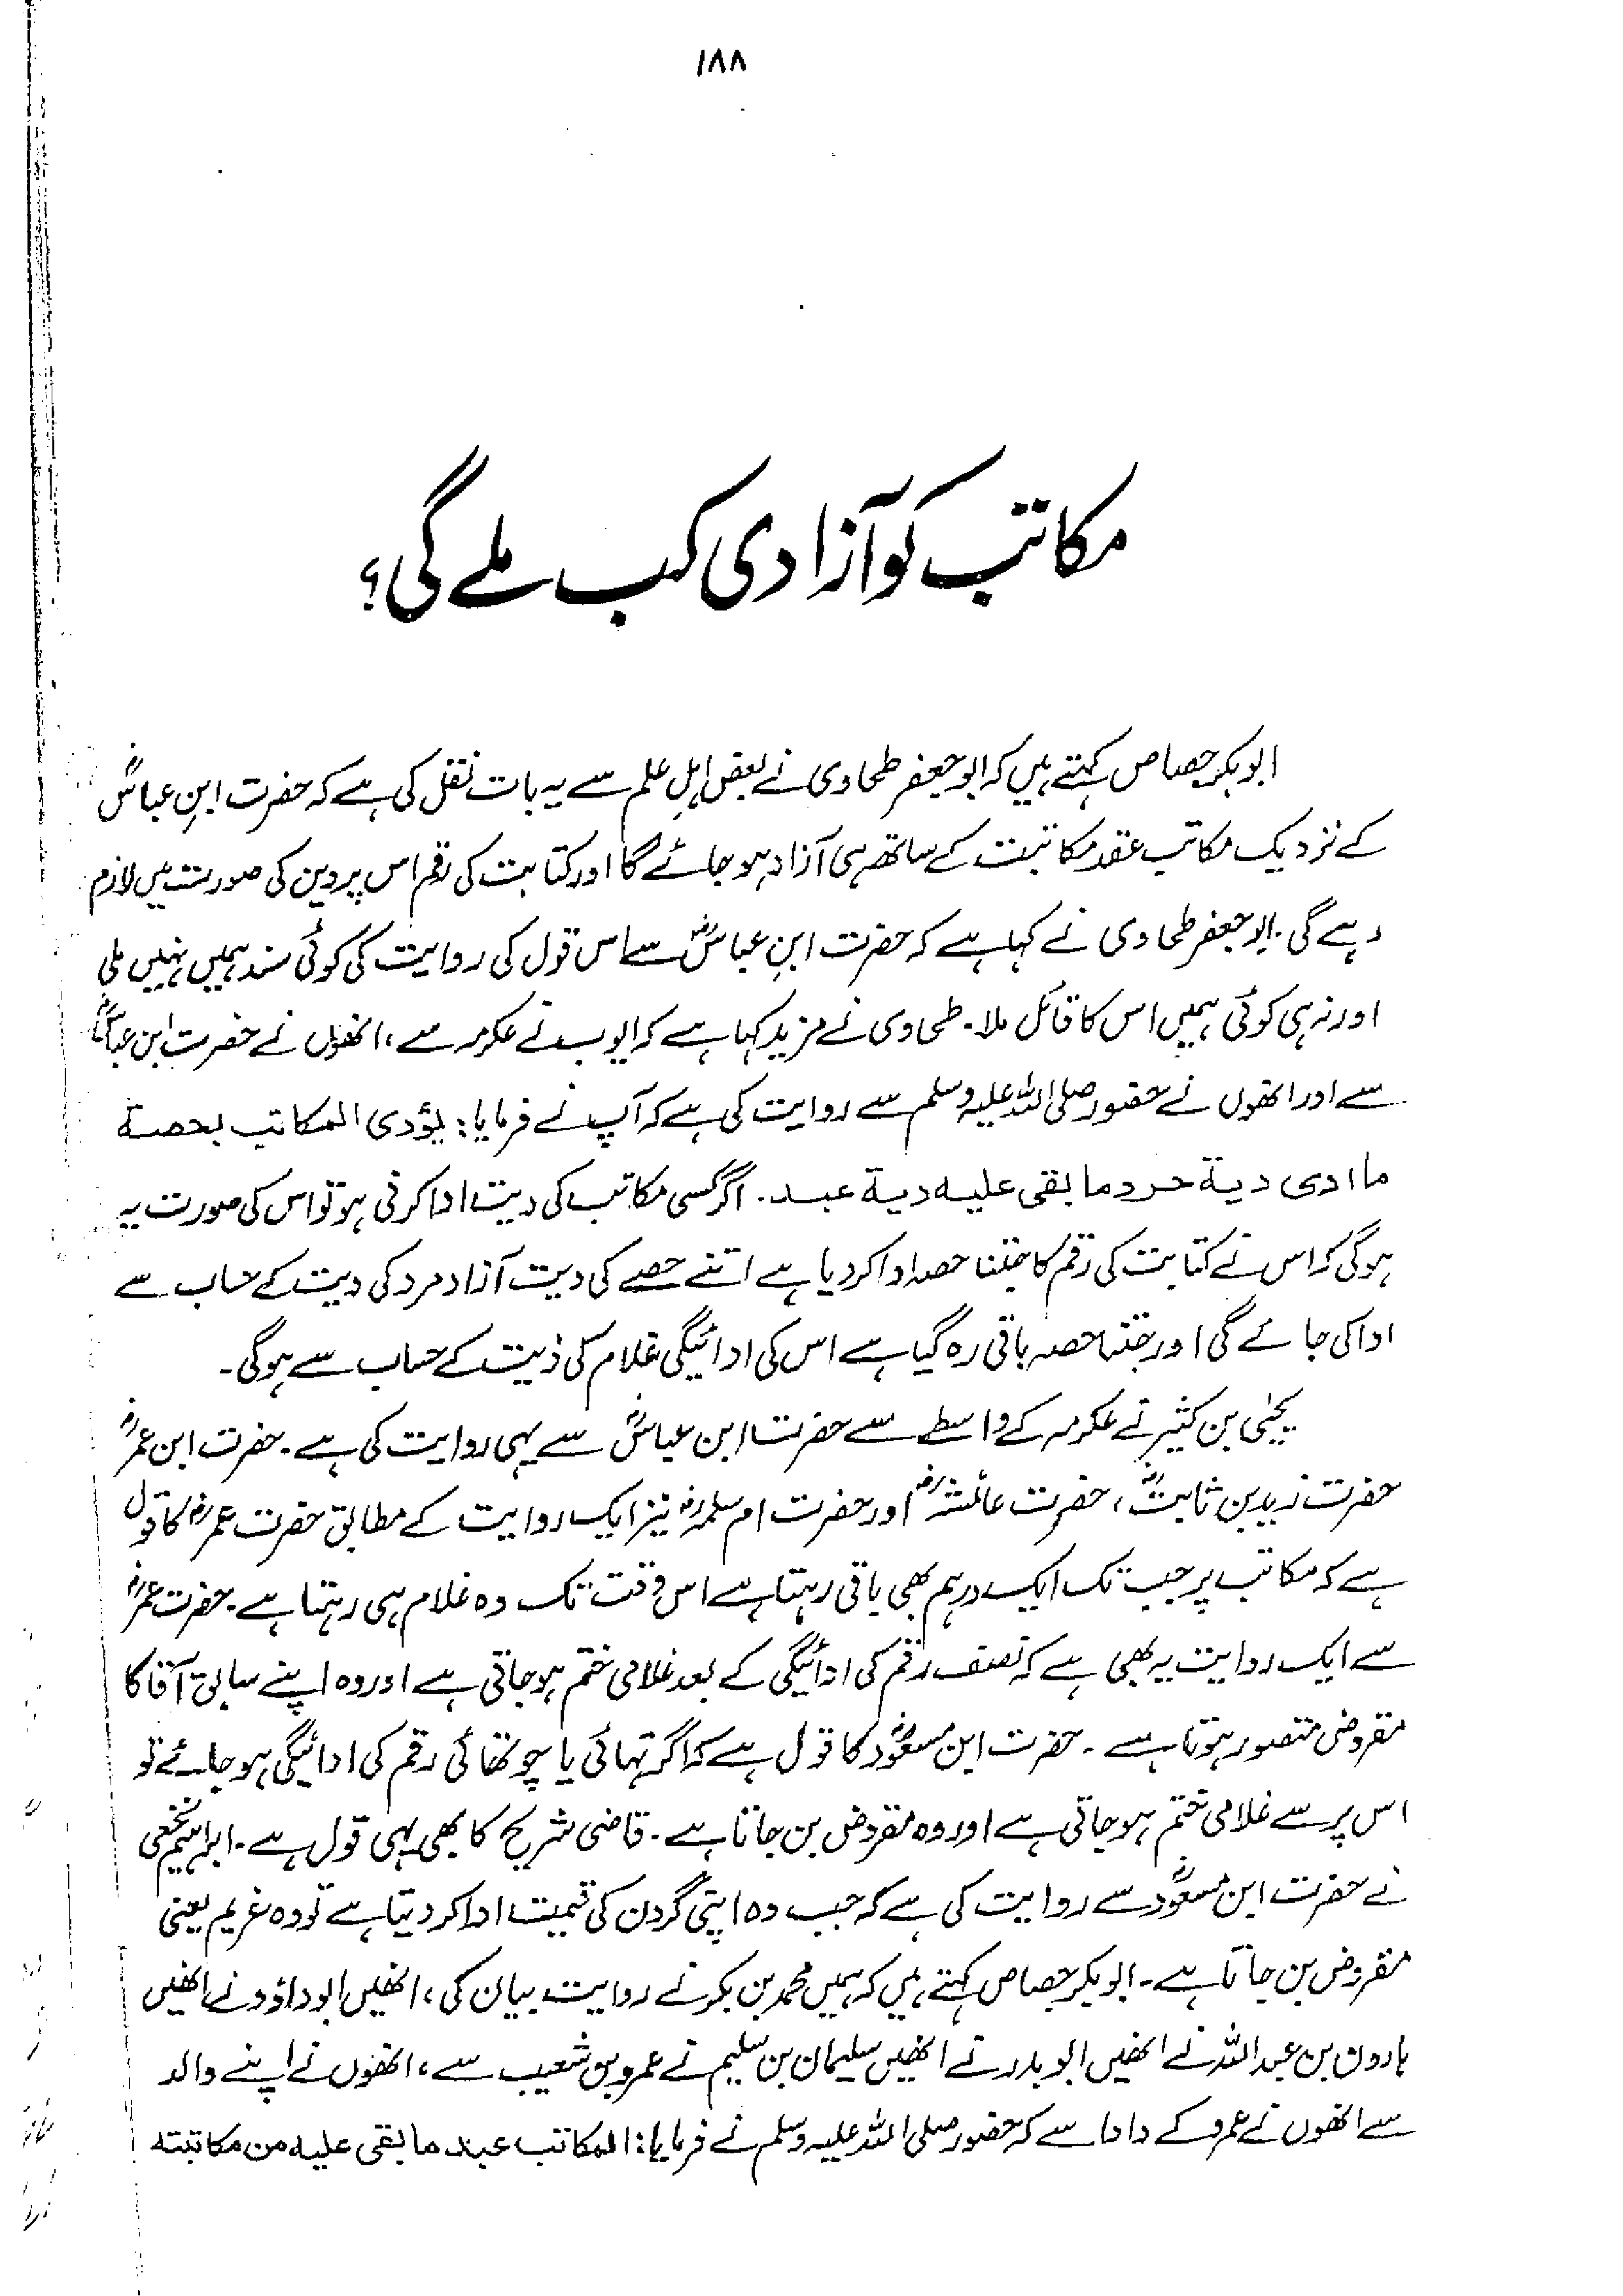 ۱۸۸
مکاتب کو آزادی کب ملے گی؟
ابوبکر جصاص کہتے ہیں کہ ابو جعفر طحاوی نے بعض اہلِ علم سے یہ بات نقل کی ہے کہ حضرت ابنِ عباسؓ
کے نزدیک مکاتب عقد مکاتبت کے ساتھ ہی آزاد ہو جائے گا اور کتابت کی رقم اس پر دین کی صورت میں لازم
رہے گی۔ ابو جعفر طحاوی نے کہا ہے کہ حضرت ابنِ عباسؓ سے اس قول کی روایت کی کوئی سند ہمیں نہیں ملی
اور نہ ہی کوئی ہمیں اس کا قائل ملا۔ طحاوی نے مزید کہا ہے کہ ایوب نے عکرمہ سے، انھوں نے حضرت ابن عباسؓ
سے اور انھوں نے حضور صلی اللہ علیہ وسلم سے روایت کی ہے کہ آپ نے فرمایا: یؤدی المکاتب بحصة
ما ادی دیة حر وما بقی علیه دیة عبد۔ اگر کسی مکاتب کی دیت ادا کرنی ہو تو اس کی صورت یہ
ہوگی کہ اس نے کتابت کی رقم کا جتنا حصہ ادا کر دیا ہے اتنے حصے کی دیت آزاد مرد کی دیت کے حساب سے
ادا کی جائے گی اور جتنا حصہ باقی رہ گیا ہے اس کی ادائیگی غلام کی دیت کے حساب سے ہوگی۔
یحیٰی بن کثیر نے عکرمہ کے واسطے سے حضرت ابن عباسؓ سے یہی روایت کی ہے۔ حضرت ابن عمرؓ
حضرت زید بن ثابتؓ، حضرت عائشہؓ اور حضرت ام سلمہؓ نیز ایک روایت کے مطابق حضرت عمرؓ کا قول
ہے کہ مکاتب پر جب تک ایک درہم بھی باقی رہتا ہے اس وقت تک وہ غلام ہی رہتا ہے۔ حضرت عمرؓ
سے ایک روایت یہ بھی ہے کہ نصف رقم کی ادائیگی کے بعد غلامی ختم ہو جاتی ہے اور وہ اپنے سابق آقا کا
مقروض متصور ہوتا ہے۔ حضرت ابن مسعودؓ کا قول ہے کہ اگر تہائی یا چوتھائی رقم کی ادائیگی ہو جائے تو
اس پر سے غلامی ختم ہو جاتی ہے اور وہ مقروض بن جاتا ہے۔ قاضی شریح کا بھی یہی قول ہے۔ ابراہیم نخعی
نے حضرت ابن مسعودؓ سے روایت کی ہے کہ جب وہ اپنی گردن کی قیمت ادا کر دیتا ہے تو وہ غریم یعنی
مقروض بن جاتا ہے۔ ابوبکر جصاص کہتے ہیں کہ ہمیں محمد بن بکر نے روایت بیان کی، انھیں ابو داؤد نے انھیں
ہارون بن عبداللہ نے انھیں ابو بدر نے انھیں سلیمان بن سلیم نے عمرو بن شعیب سے، انھوں نے اپنے والد
سے انھوں نے عمرو کے دادا سے کہ حضور صلی اللہ علیہ وسلم نے فرمایا: المکاتب عبد ما بقی علیه من مکاتبته